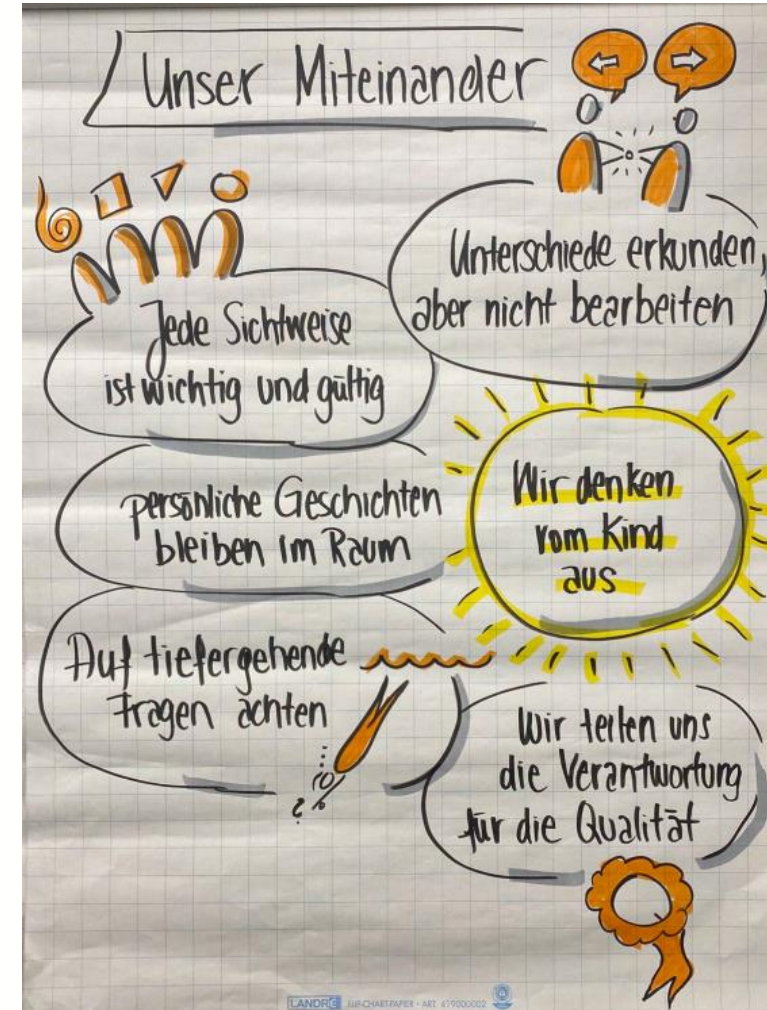 Unser Miteinander
Unterschiede erkunden,
aber nicht bearbeiten
Jede Sichtweise
ist wichtig und gültig
Wir denken
vom Kind
aus
persönliche Geschichten
bleiben im Raum
Auf tiefergehende
Fragen achten
Wir teilen uns
die Verantwortung
für die Qualität
LANDRÉ FLIPCHARTPAPIER · ART. 419000002